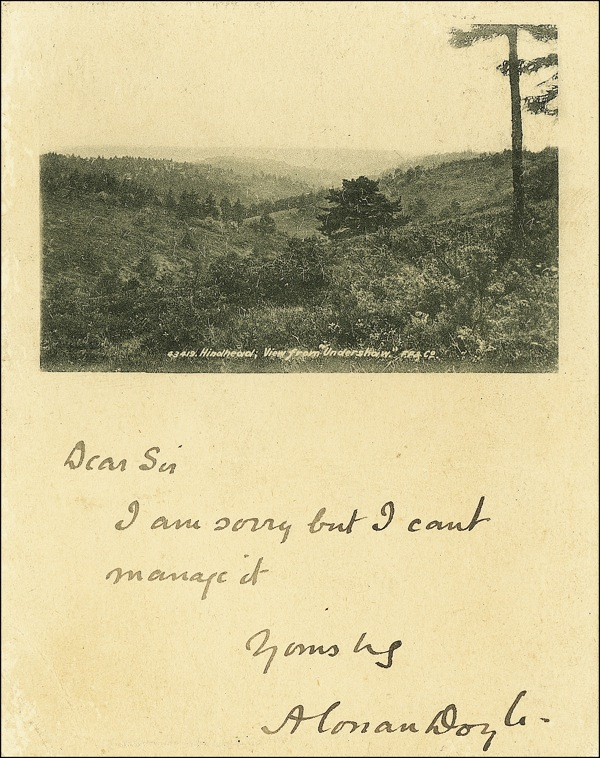 43419. Hindhead; View from "Undershaw." F.F.& Co.
Dear Sir
I am sorry but I cant
manage it
Yours
A Conan Doyle